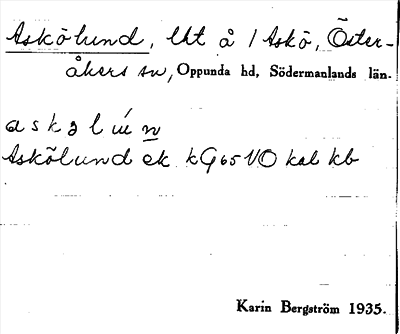 Askölund, lht å 1 Askö, Öster-
åkers sn, Oppunda hd, Södermanlands län.
a s k ɔ l ɯ́ n
Askölund ek kG65VO kal kb
Karin Bergström 1935.